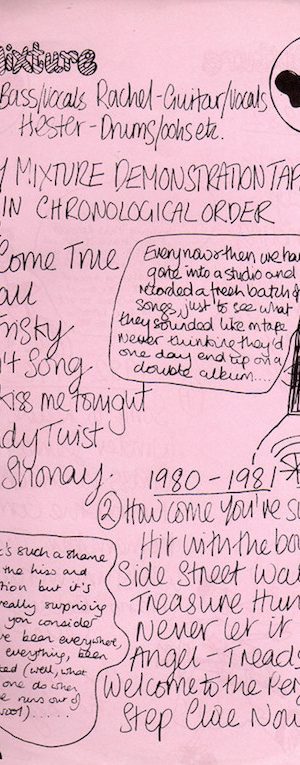 Mixture
Bass/Vocals Rachel-Guitar/Vocals
Hester-Drums/oohs etc.
MIXTURE DEMONSTRATION TAP
IN CHRONOLOGICAL ORDER
Come True
Frisky
Song
Kiss me tonight
Twist
Shonay.
Every now & then we hav
gone into a studio and
recorded a fresh batch o
songs, just to see what
they sounded like on tape
never thinking they'd
one day end up on a
double album....
1980-1981
② How come you've su
Hit with the bo
Side Street Wa
Treasure Hun
Never let it
Angel-Treads
Welcome to the Per
Step Close Now
's such a shame
the hiss and
tion but it's
really surprising
you consider
ve been everywhere,
everything, been
ted (well, what
one do when
e runs out of
oo!).....